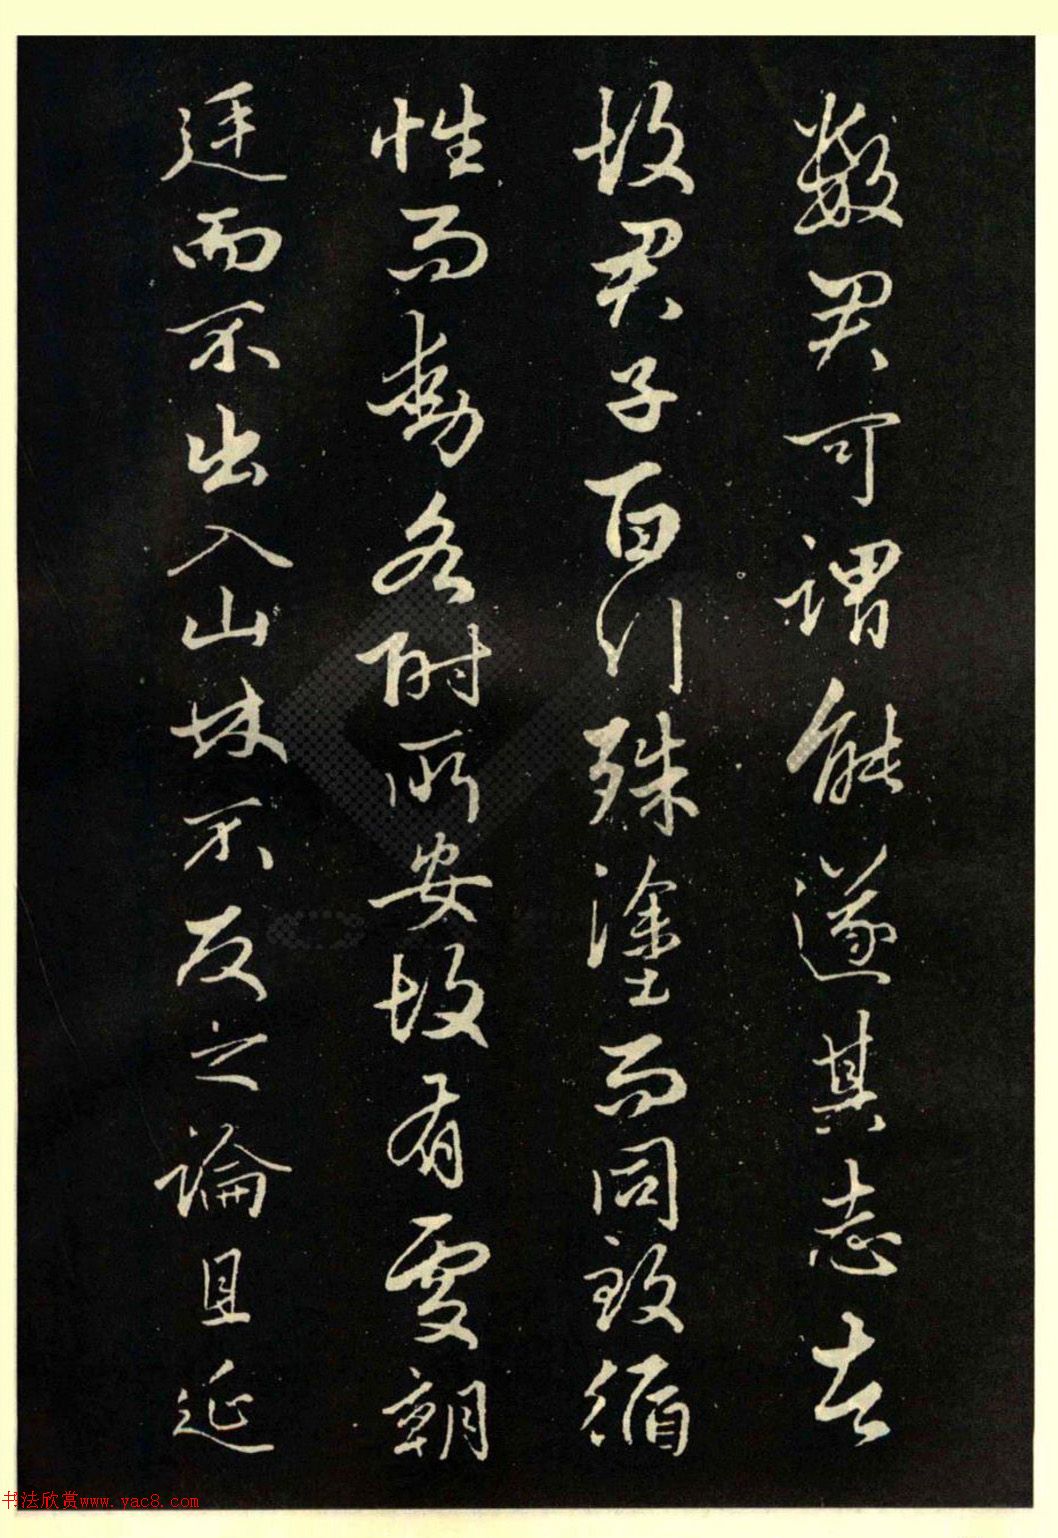 數君可謂能遂其志者
故君子百行殊塗而同致循
性而動各附所安故有處朝
廷而不出入山林不反之論且延
书法欣赏www.yac8.com